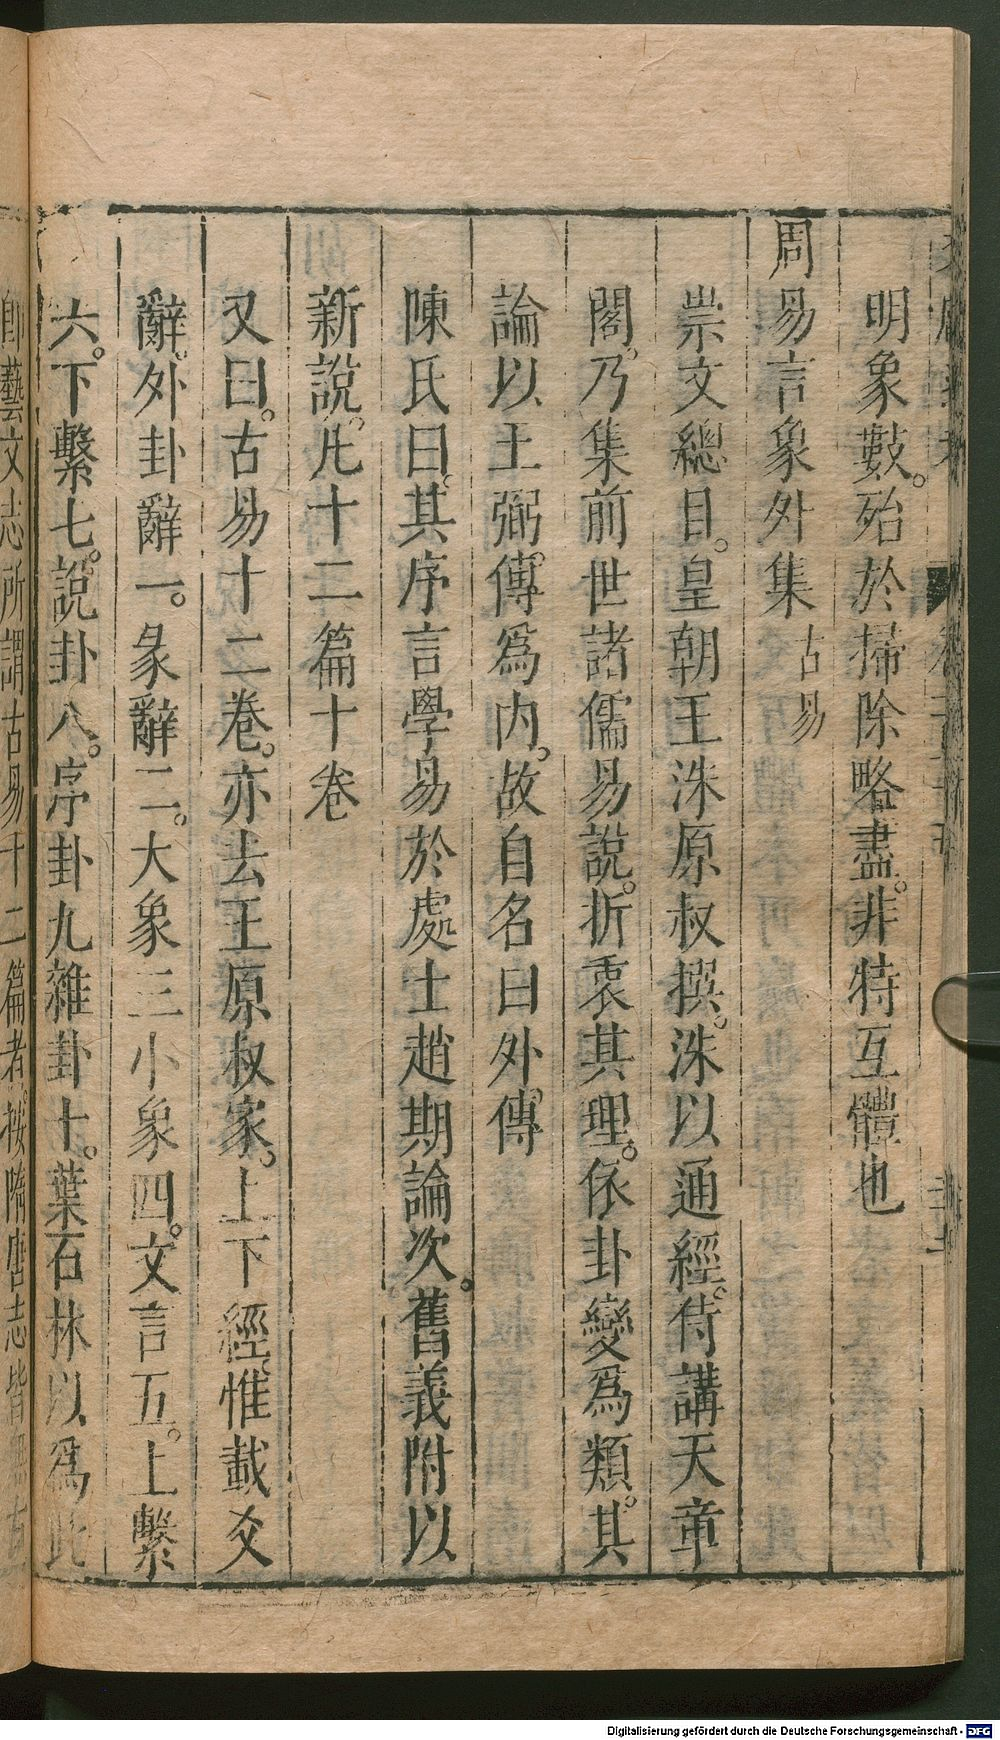 明象數。殆於掃除略盡。非特互體也
周易言象外集 古易
崇文總目。皇朝王洙原叔撰。洙以通經。侍講天章
閣。乃集前世諸儒易說。折衷其理。依卦變爲類。其
論以王弼傳爲内。故自名曰外傳
陳氏曰。其序言學易於處士趙期論次。舊義附以
新說。凡十二篇十卷
又曰。古易十二卷。亦去王原叔家。上下經。惟載爻
辭。外卦辭一。彖辭二。大象三小象四。文言五。上繫
六。下繫七。說卦八。序卦九雜卦十。葉石林以爲此
卽藝文志所謂古易十二篇者。按隋唐志皆無古
Digitalisierung gefördert durch die Deutsche Forschungsgemeinschaft - DFG